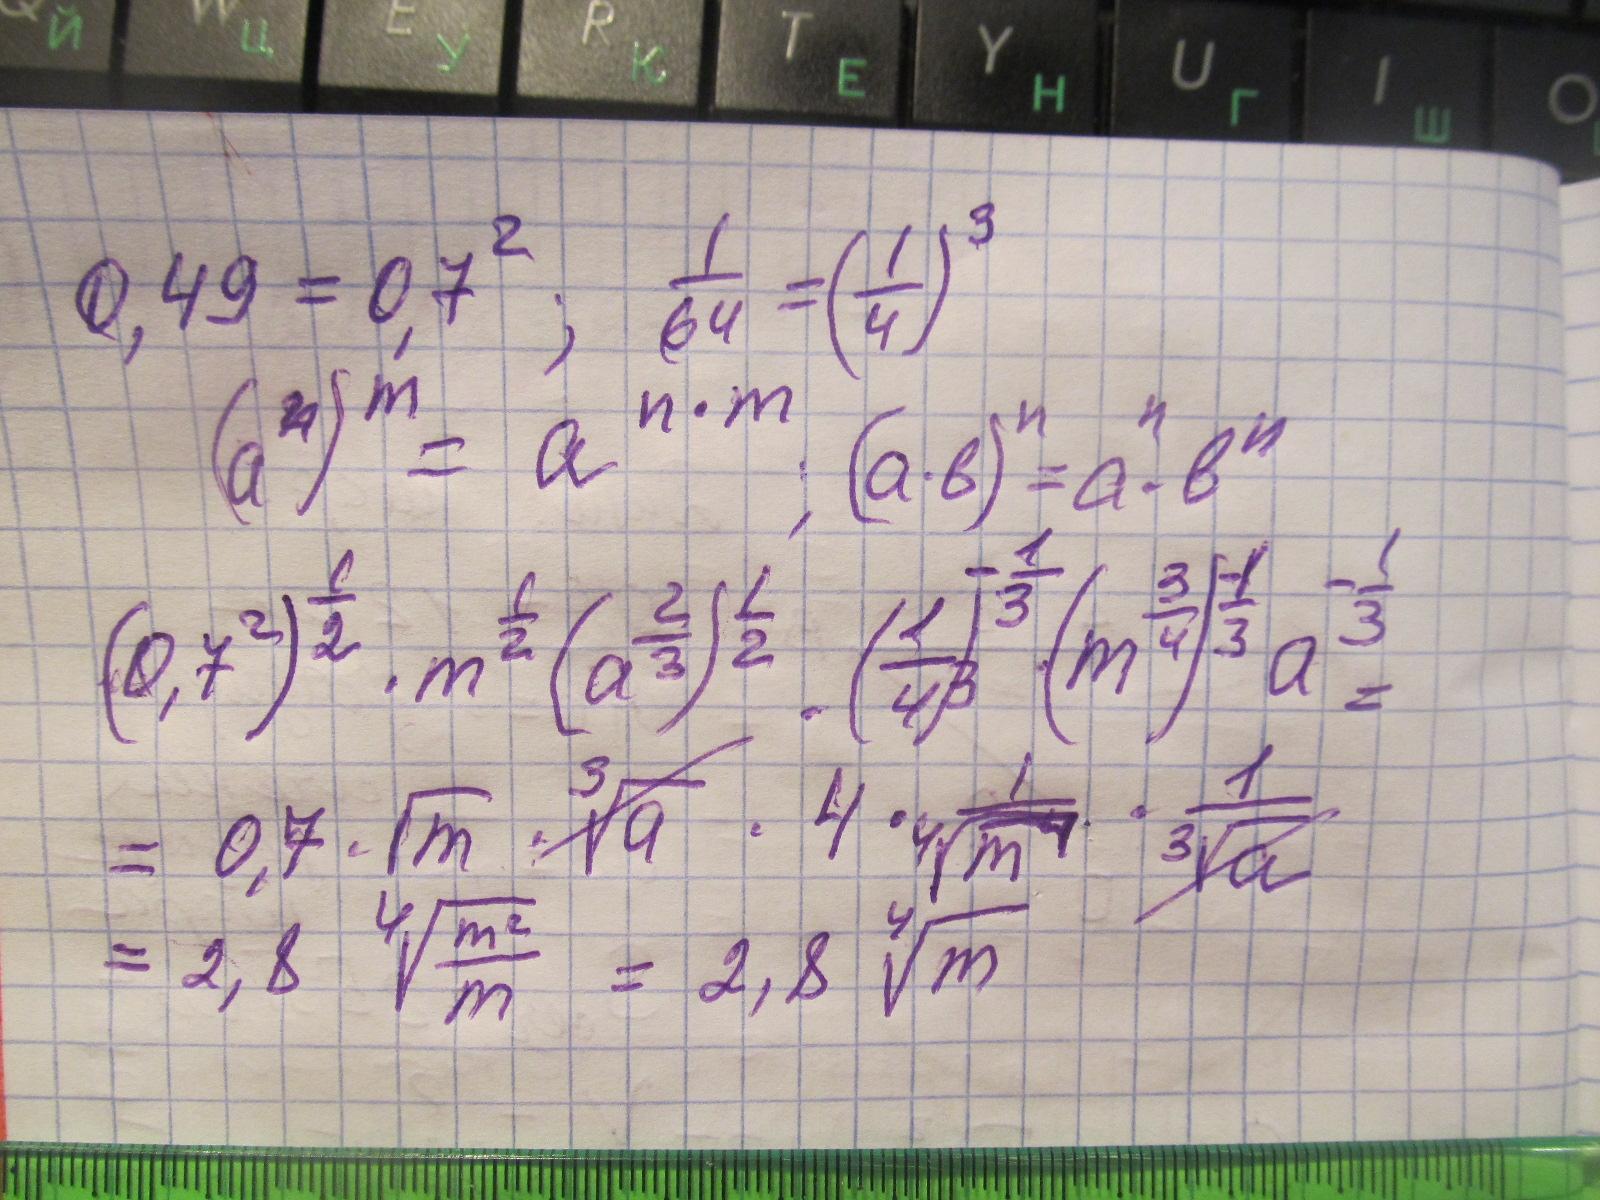 Q Й W Ц E У R К T Е Y Н U Г I Ш O
0,49 = 0,7² ; 1/64 = (1/4)³
(aⁿ)ᵐ = aⁿ·ᵐ ; (a·в)ⁿ = aⁿ·вⁿ
(0,7²)^(1/2) · m^(1/2) (a^(2/3))^(1/2) · (1/4)^3^(-1/3) · (m^(3/4))^(-1/3) a^(-1/3) =
= 0,7 · √m · ∛a · 4 · 1/⁴√m · 1/∛a
= 2,8 ⁴√(m²/m) = 2,8 ⁴√m